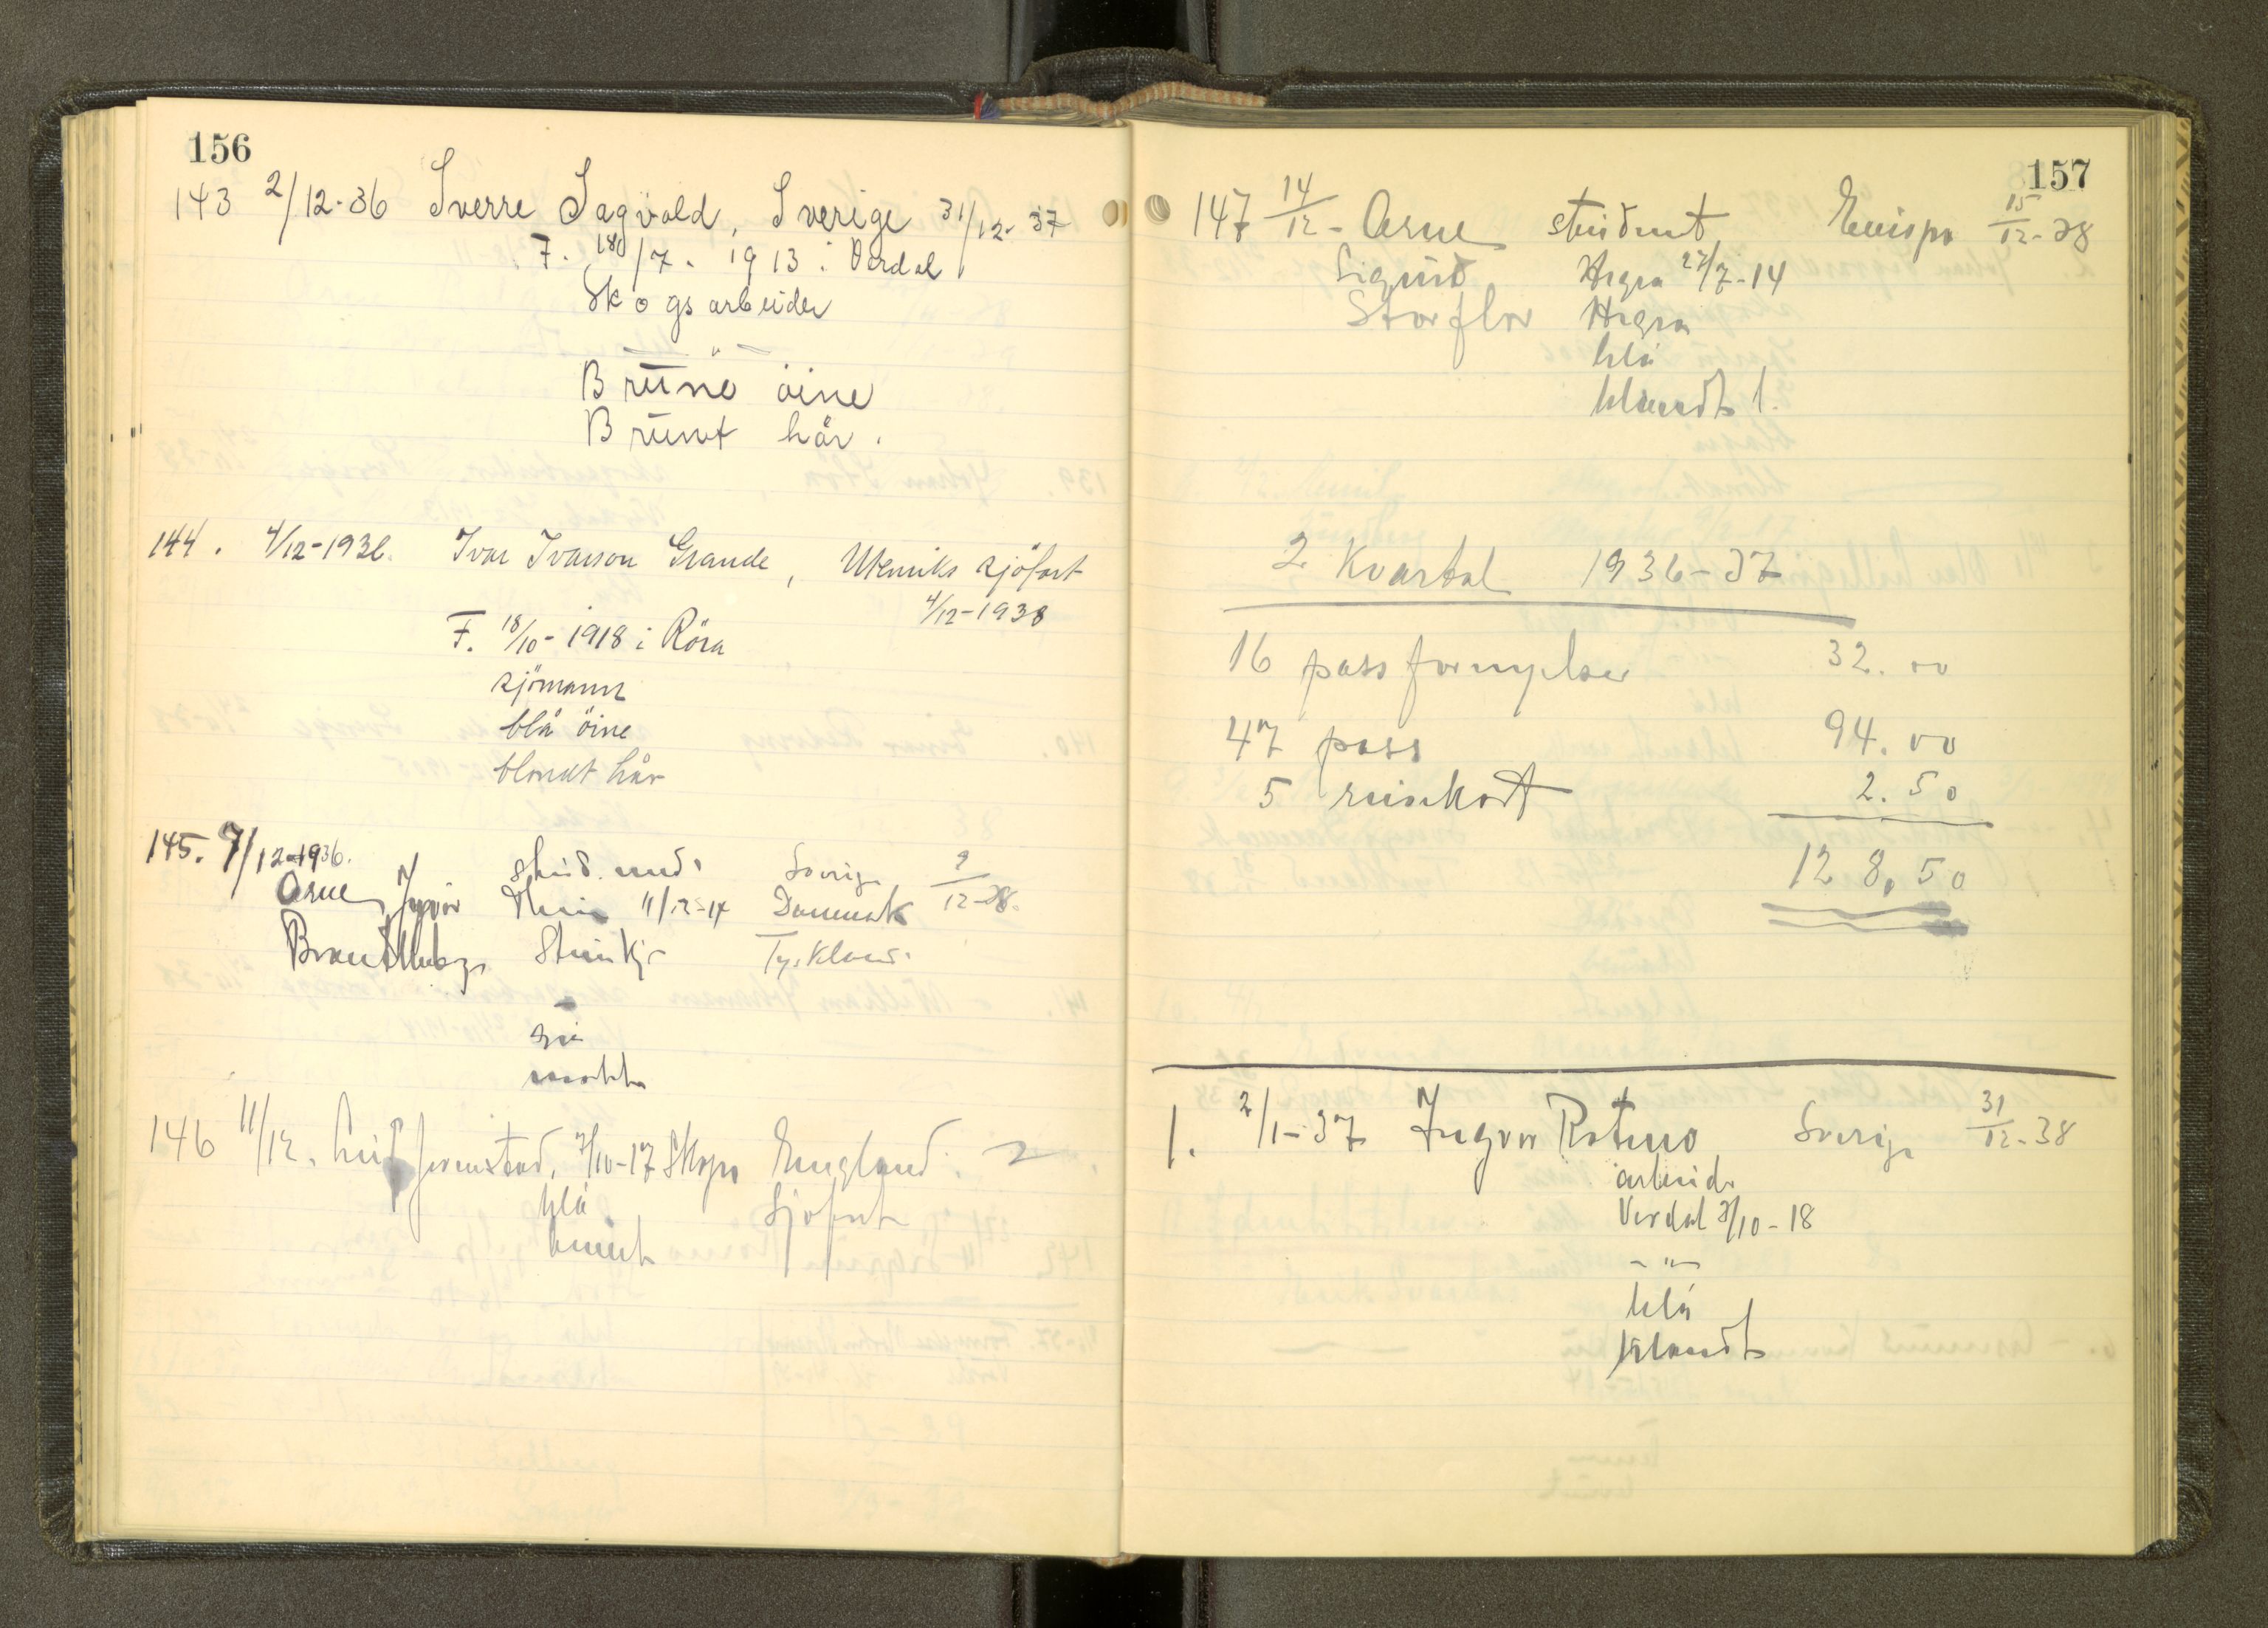 156
143 2/12-36 Sverre Sagvold, Sverige 31/12-37
F. 18/7. 1913 i Verdal
Skogsarbeider
— " —
Brune öine
Brunt hår.
144. 4/12-1936. Ivar Ivarson Grande, Utenriks sjöfart
4/12-1938
F. 18/10-1918 i Röra
sjömann
blå öine
blondt hår
145. 9/12-1936. stud. med. Sverige 9/12-38.
Arne Yngvar 11/12-14 Danmark
Steinkjer Tyskland.
mörkt
146 11/12. Leif Jermstad, 7/10-17 Skogn England. 2
blå Sjöfart
brunt
157
147 14/12- Arne student Europa 15/12-38
Sigurd Hegra 27/7-14
Storflor Hegra
blå
blondt l.
2 Kvartal 1936-37
16 passfornyelser 32.00
47 pass 94.00
5 reisekort 2.50
128,50
1. 2/1-37 Ingvar Rotmo Sverige 31/12-38
arbeider
Verdal 3/10-18
- " -
blå
blondt